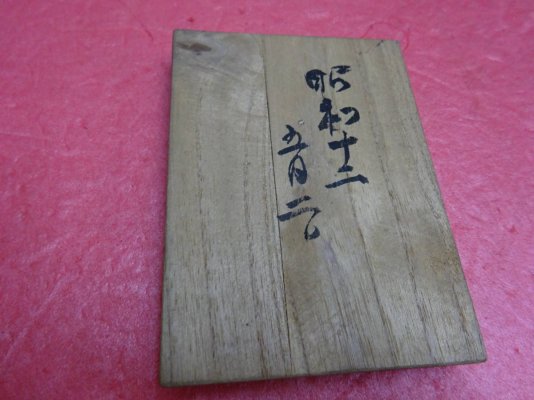 昭和十二
五月二日